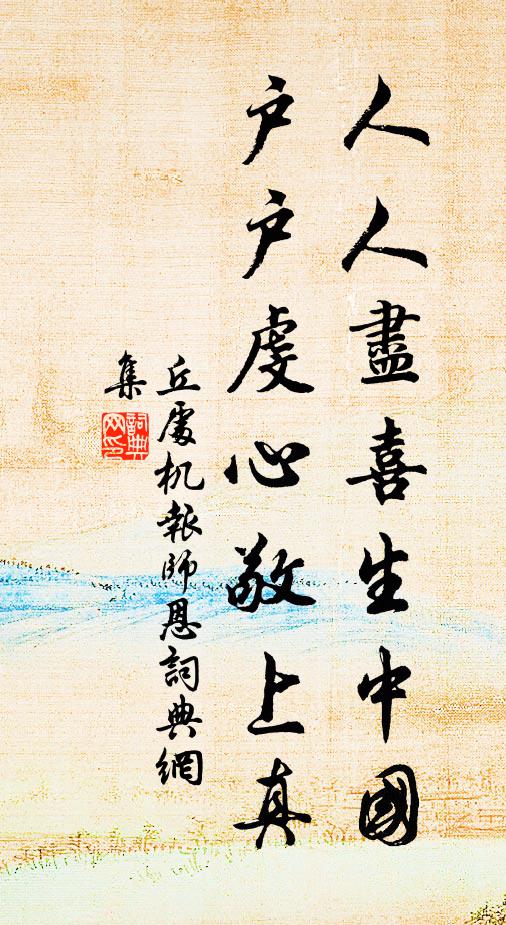 人人盡喜生中國
户户虔心敬上真
丘處机報師恩詞典網
集
詞典
网印